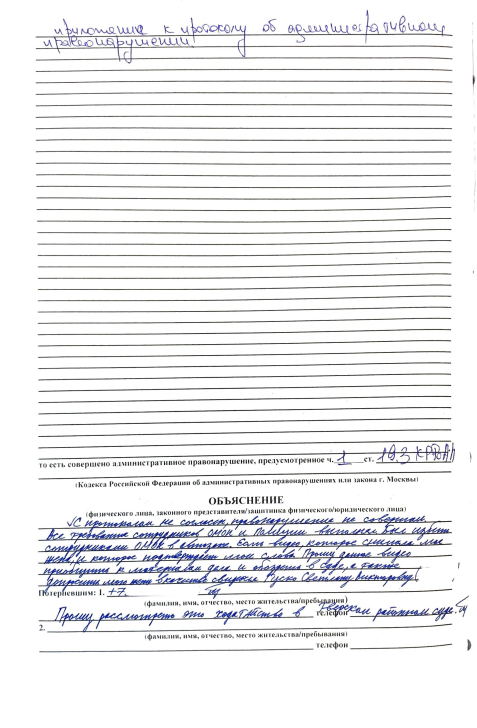 приложение к протоколу об административном
правонарушении
то есть совершено административное правонарушение, предусмотренное ч. 1 ст. 19.3 КРФоАП
(Кодекса Российской Федерации об административных правонарушениях или закона г. Москвы)
ОБЪЯСНЕНИЕ
(физического лица, законного представителя/защитника физического/юридического лица)
С протоколом не согласен, правонарушение не совершал.
Все требования сотрудников ОМОН и Полиции выполнял. Был избит
сотрудниками ОМОН в автозаке. Есть видео, которое снимала моя
жена, и которое подтверждает мои слова. Прошу данное видео
приобщить к материалам дела и обозреть в суде, а также
допросить мою жену в качестве свидетеля Светлану Викторовну
Потерпевшим: 1.
(фамилия, имя, отчество, место жительства/пребывания)
Прошу рассмотреть это ходатайство в Тверском районном суде.
телефон
2.
(фамилия, имя, отчество, место жительства/пребывания)
телефон